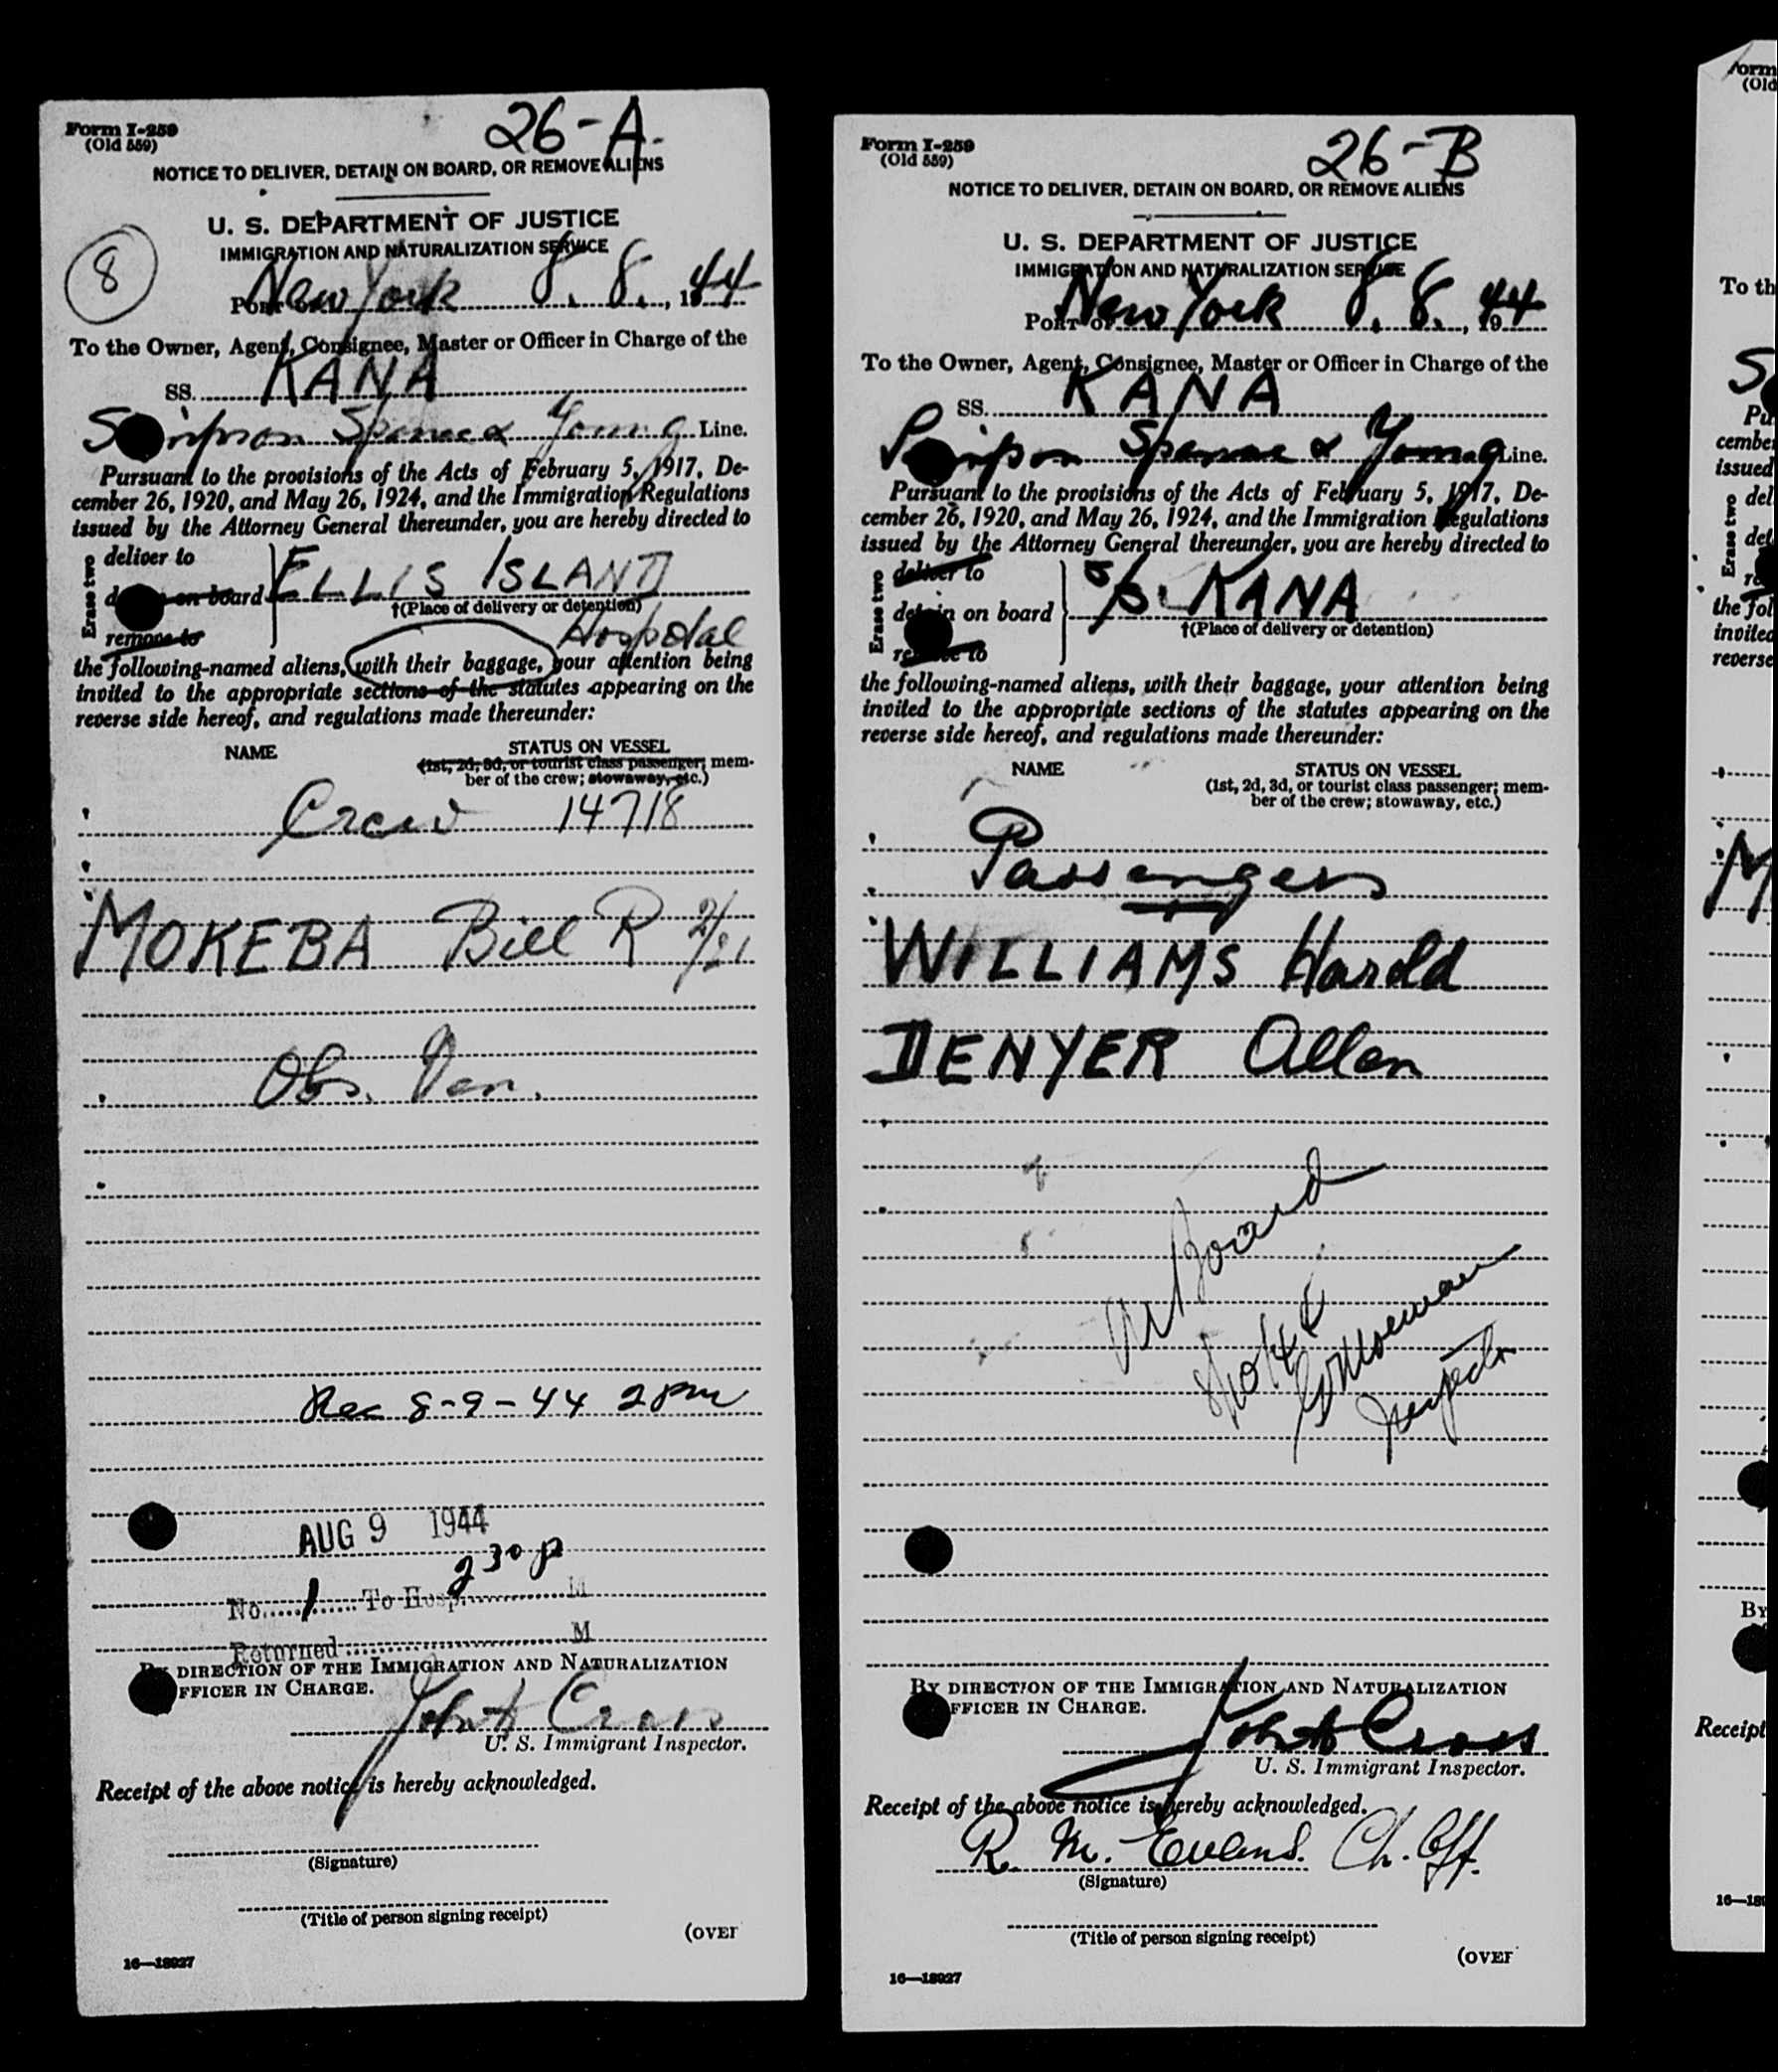 Form I-259
(Old 559)
26-A.
NOTICE TO DELIVER, DETAIN ON BOARD, OR REMOVE ALIENS
U. S. DEPARTMENT OF JUSTICE
IMMIGRATION AND NATURALIZATION SERVICE
8
PORT OF New York 8. 8., 1944
To the Owner, Agent, Consignee, Master or Officer in Charge of the
SS. KANA
Spence & Young Line.
Pursuant to the provisions of the Acts of February 5, 1917, De-
cember 26, 1920, and May 26, 1924, and the Immigration Regulations
issued by the Attorney General thereunder, you are hereby directed to
Erase two
deliver to
on board
remove to
ELLIS ISLAND
†(Place of delivery or detention)
Hospital
the following-named aliens, with their baggage, your attention being
invited to the appropriate sections of the statutes appearing on the
reverse side hereof, and regulations made thereunder:
NAME
STATUS ON VESSEL
(1st, 2d, 3d, or tourist class passenger; mem-
ber of the crew; stowaway, etc.)
Crew 14718
MOKEBA Bill R
Obs. Ven.
Rec 8-9-44 2 PM
AUG 9 1944
2 30 P
No. 1 To Hosp. M
Returned M
BY DIRECTION OF THE IMMIGRATION AND NATURALIZATION
FFICER IN CHARGE.
John A Cross
U. S. Immigrant Inspector.
Receipt of the above notice is hereby acknowledged.
(Signature)
(Title of person signing receipt)
(OVER
16—18927
Form I-259
(Old 559)
26-B
NOTICE TO DELIVER, DETAIN ON BOARD, OR REMOVE ALIENS
U. S. DEPARTMENT OF JUSTICE
IMMIGRATION AND NATURALIZATION SERVICE
PORT OF New York 8. 8., 1944
To the Owner, Agent, Consignee, Master or Officer in Charge of the
SS. KANA
Spence & Young Line.
Pursuant to the provisions of the Acts of February 5, 1917, De-
cember 26, 1920, and May 26, 1924, and the Immigration Regulations
issued by the Attorney General thereunder, you are hereby directed to
Erase two
deliver to
detain on board
remove to
S/S. KANA
†(Place of delivery or detention)
the following-named aliens, with their baggage, your attention being
invited to the appropriate sections of the statutes appearing on the
reverse side hereof, and regulations made thereunder:
NAME
STATUS ON VESSEL
(1st, 2d, 3d, or tourist class passenger; mem-
ber of the crew; stowaway, etc.)
Passengers
WILLIAMS Harold
DENYER Allen
Board
Inspector
BY DIRECTION OF THE IMMIGRATION AND NATURALIZATION
FFICER IN CHARGE.
John A Cross
U. S. Immigrant Inspector.
Receipt of the above notice is hereby acknowledged.
R. M. Ch. Off.
(Signature)
(Title of person signing receipt)
(OVER
16—18927
Form
(Old
To th
S
Pu
cember
issued
Erase two
del
det
the fol
invited
reverse
M
By
Receipt